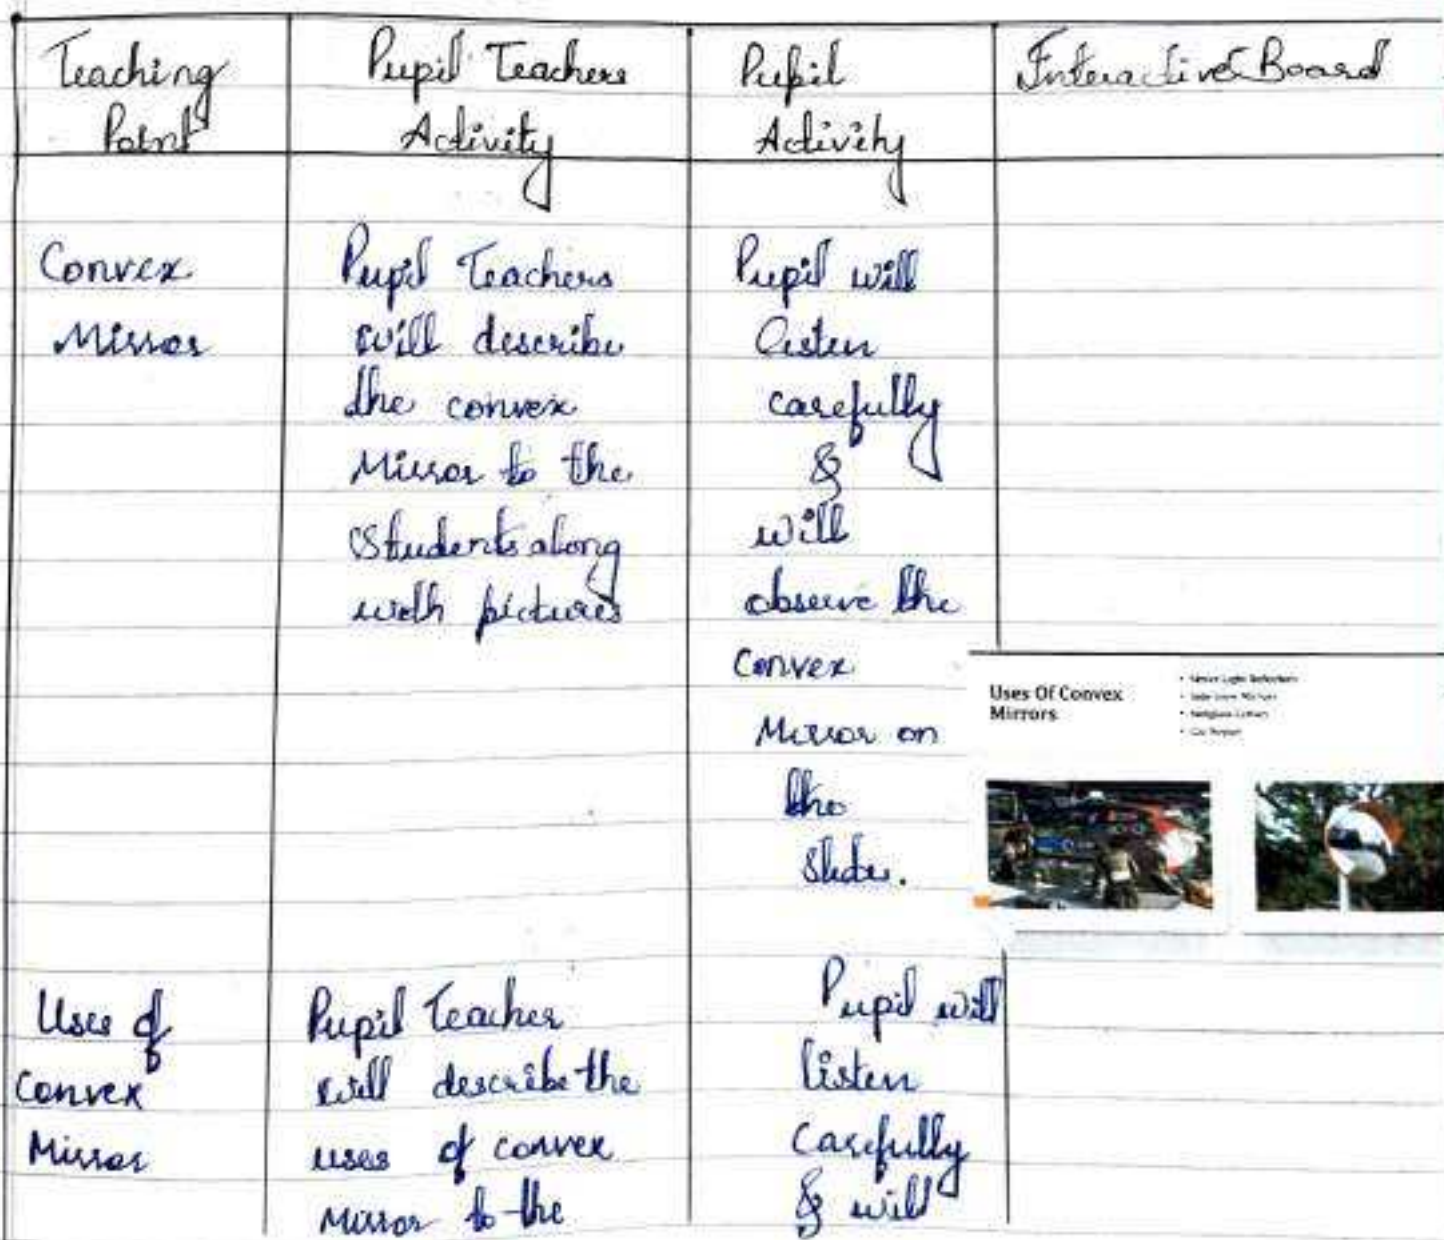 Teaching Point
Pupil Teachers Activity
Pupil Activity
Interactive Board
Convex
Mirror
Pupil Teachers
will describe
the convex
Mirror to the
Students along
with pictures
Pupil will
listen
carefully
&
will
observe the
Convex
Mirror on
the
Uses Of Convex
Mirrors
• Street Light Reflectors
Uses of
Convex
Mirror
Pupil Teacher
will describe the
uses of convex
Mirror to the
Pupil will
listen
Carefully
& will